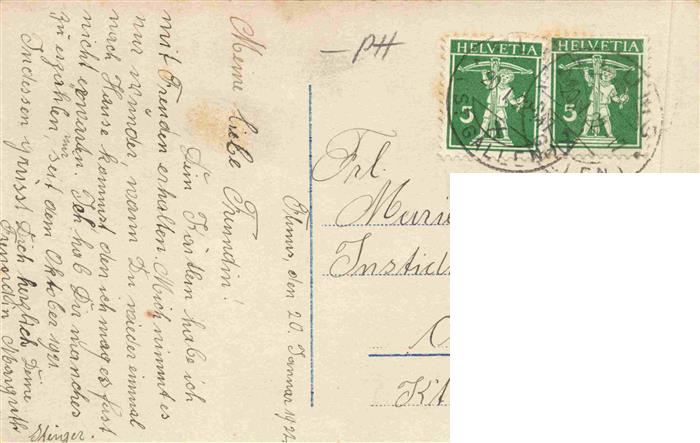 Flums, den 20. Januar 1922.
Meine liebe Freundin!
Dein Kärtlein habe ich
mit Freuden erhalten. Mich nimmt es
nur wunder wann Du wieder einmal
nach Hause kommst den ich mag es fast
nicht erwarten. Ich hab Dir manches
zu erzählen nur seit dem Oktober 1921.
Indessen grüsst Dich herzlich Deine
Freundin Margrith
— PH
HELVETIA
5
HELVETIA
5
ST. GALLEN
Frl.